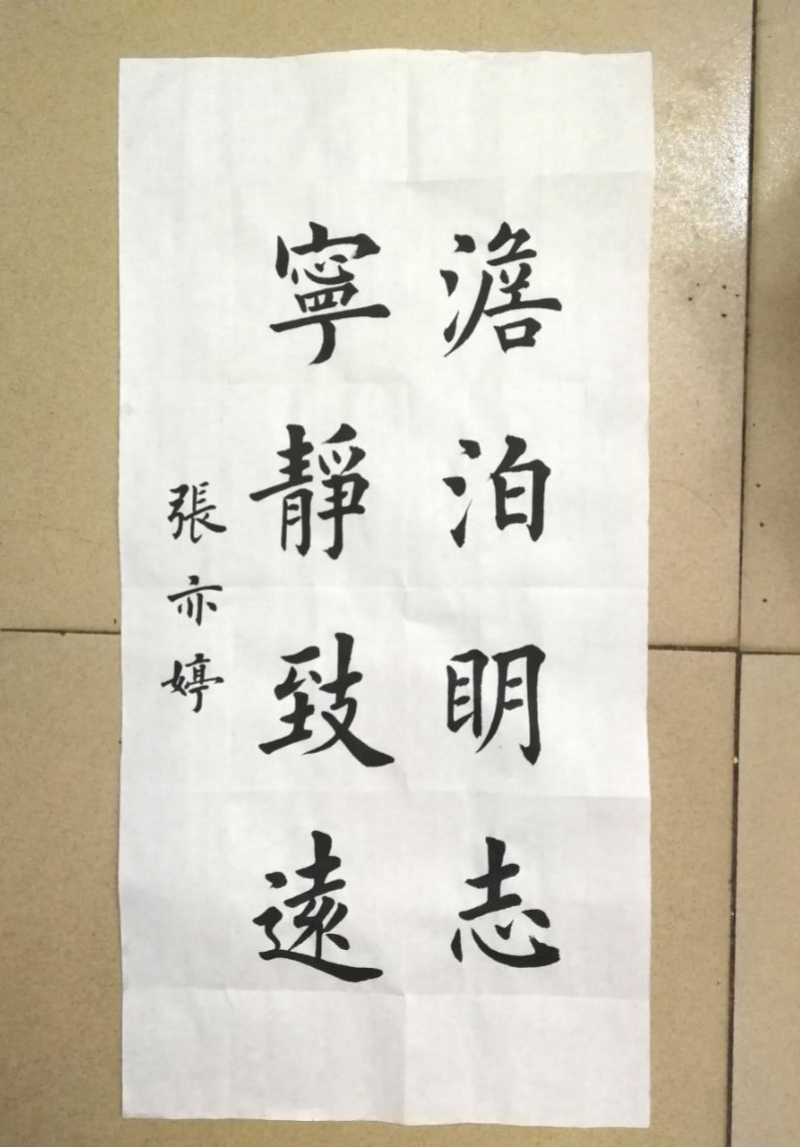 澹泊明志
寧靜致遠
張亦婷